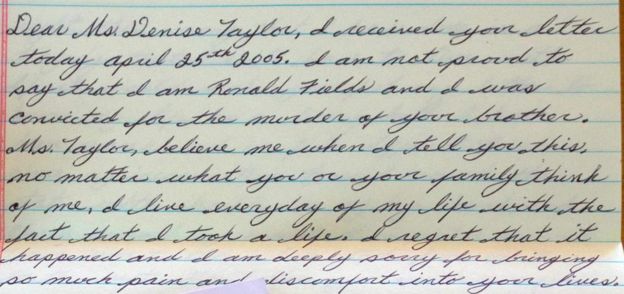 Dear Ms. Denise Taylor, I received your letter
today april 25th 2005. I am not proud to
say that I am Ronald Fields and I was
convicted for the murder of your brother.
Ms. Taylor, believe me when I tell you this,
no matter what you or your family think
of me, I live everyday of my life with the
fact that I took a life. I regret that it
happened and I am deeply sorry for bringing
so much pain and discomfort into your lives.